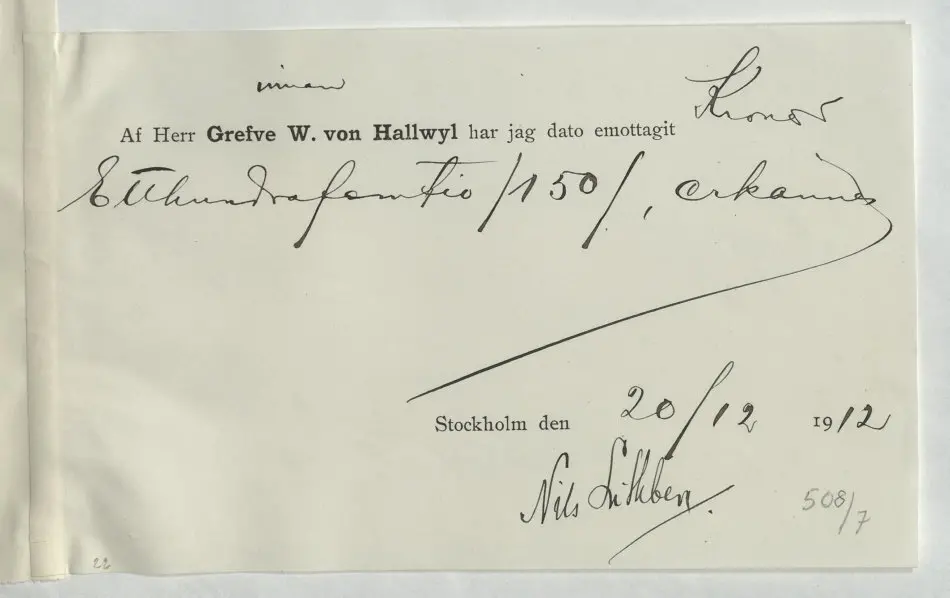 innan
Af Herr Grefve W. von Hallwyl har jag dato emottagit Kronor
Etthundrafemtio /150/, erkännes
Stockholm den 20/12 1912
Nils Lithberg.
508/7
22